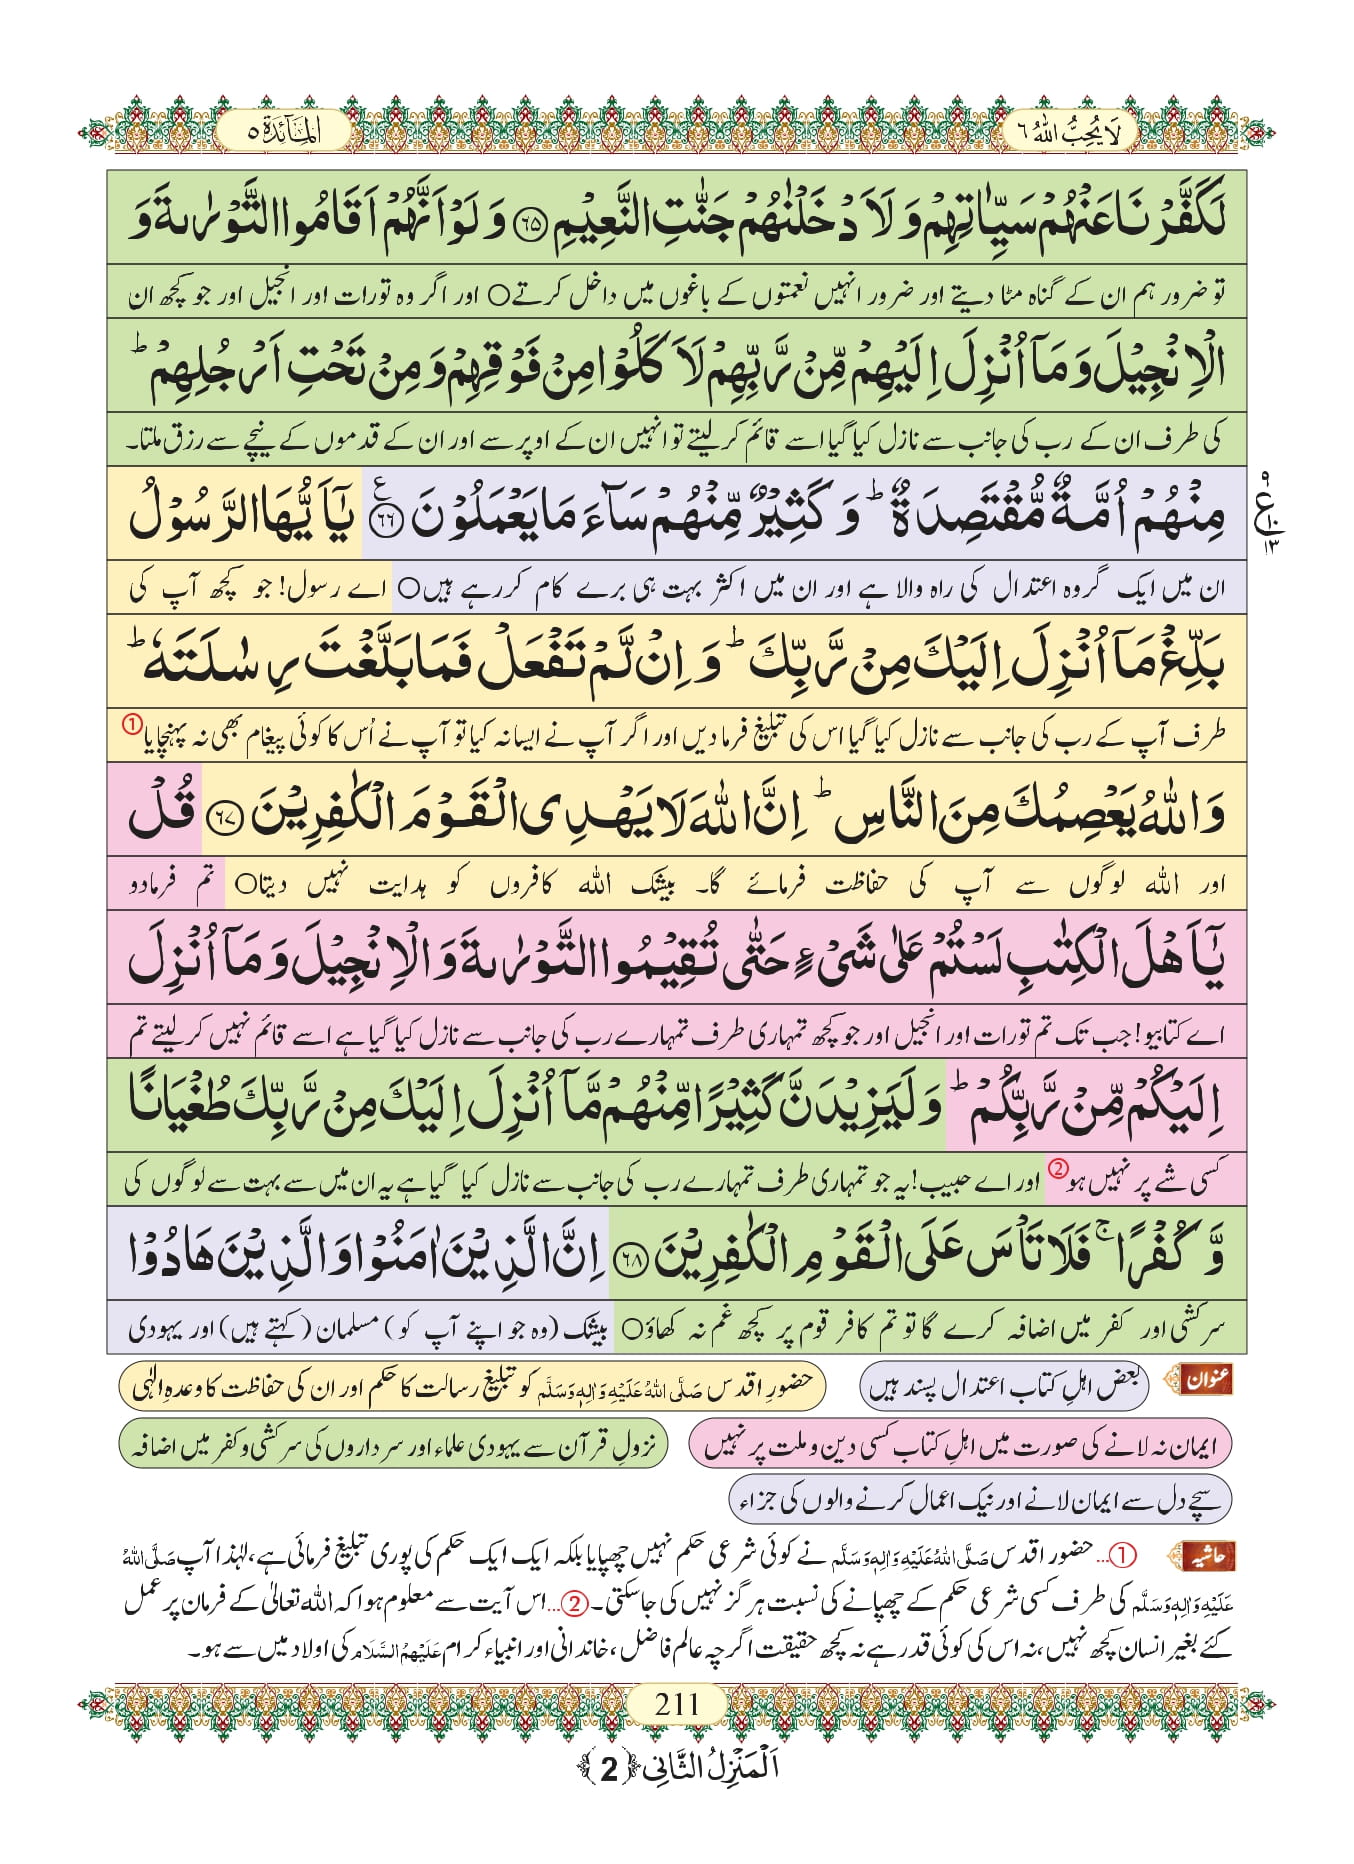 لَا یُحِبُّ اللّٰهُ ٦
اَلْمَآئِدَة ٥
لَكَفَّرْنَا عَنْهُمْ سَیِّاٰتِهِمْ وَ لَاَدْخَلْنٰهُمْ جَنّٰتِ النَّعِیْمِ ﴿٦٥﴾ وَ لَوْ اَنَّهُمْ اَقَامُوا التَّوْرٰىةَ وَ
تو ضرور ہم ان کے گناہ مٹا دیتے اور ضرور انہیں نعمتوں کے باغوں میں داخل کرتے○ اور اگر وہ تورات اور انجیل اور جو کچھ ان
الْاِنْجِیْلَ وَ مَاۤ اُنْزِلَ اِلَیْهِمْ مِّنْ رَّبِّهِمْ لَاَكَلُوْا مِنْ فَوْقِهِمْ وَ مِنْ تَحْتِ اَرْجُلِهِمْؕ
کی طرف ان کے رب کی جانب سے نازل کیا گیا اسے قائم کرلیتے تو انہیں ان کے اوپر سے اور ان کے قدموں کے نیچے سے رزق ملتا۔
مِنْهُمْ اُمَّةٌ مُّقْتَصِدَةٌؕ وَ كَثِیْرٌ مِّنْهُمْ سَآءَ مَا یَعْمَلُوْنَ۠ ﴿٦٦﴾ یٰۤاَیُّهَا الرَّسُوْلُ
٩ ع ١٠ ١٣
ان میں ایک گروہ اعتدال کی راہ والا ہے اور ان میں اکثر بہت ہی برے کام کررہے ہیں○ اے رسول! جو کچھ آپ کی
بَلِّغْ مَاۤ اُنْزِلَ اِلَیْكَ مِنْ رَّبِّكَؕ وَ اِنْ لَّمْ تَفْعَلْ فَمَا بَلَّغْتَ رِسٰلَتَهٗؕ
طرف آپ کے رب کی جانب سے نازل کیا گیا اس کی تبلیغ فرما دیں اور اگر آپ نے ایسا نہ کیا تو آپ نے اُس کا کوئی پیغام بھی نہ پہنچایا①
وَ اللّٰهُ یَعْصِمُكَ مِنَ النَّاسِؕ اِنَّ اللّٰهَ لَا یَهْدِی الْقَوْمَ الْكٰفِرِیْنَ ﴿٦٧﴾ قُلْ
اور اللہ لوگوں سے آپ کی حفاظت فرمائے گا۔ بیشک اللہ کافروں کو ہدایت نہیں دیتا○ تم فرمادو
یٰۤاَهْلَ الْكِتٰبِ لَسْتُمْ عَلٰى شَیْءٍ حَتّٰى تُقِیْمُوا التَّوْرٰىةَ وَ الْاِنْجِیْلَ وَ مَاۤ اُنْزِلَ
اے کتابیو! جب تک تم تورات اور انجیل اور جو کچھ تمہاری طرف تمہارے رب کی جانب سے نازل کیا گیا ہے اسے قائم نہیں کرلیتے تم
اِلَیْكُمْ مِّنْ رَّبِّكُمْؕ وَ لَیَزِیْدَنَّ كَثِیْرًا مِّنْهُمْ مَّاۤ اُنْزِلَ اِلَیْكَ مِنْ رَّبِّكَ طُغْیَانًا
کسی شے پر نہیں ہو② اور اے حبیب! یہ جو تمہاری طرف تمہارے رب کی جانب سے نازل کیا گیا ہے یہ ان میں سے بہت سے لوگوں کی
وَّ كُفْرًاۚ فَلَا تَاْسَ عَلَى الْقَوْمِ الْكٰفِرِیْنَ ﴿٦٨﴾ اِنَّ الَّذِیْنَ اٰمَنُوْا وَ الَّذِیْنَ هَادُوْا
سرکشی اور کفر میں اضافہ کرے گا تو تم کافر قوم پر کچھ غم نہ کھاؤ○ بیشک (وہ جو اپنے آپ کو) مسلمان (کہتے ہیں) اور یہودی
عنوان بعض اہلِ کتاب اعتدال پسند ہیں حضورِ اقدس صَلَّی اللہُ عَلَیْہِ وَاٰلِہٖ وَسَلَّم کو تبلیغِ رسالت کا حکم اور ان کی حفاظت کا وعدہِ الٰہی
ایمان نہ لانے کی صورت میں اہلِ کتاب کسی دین و ملت پر نہیں نزولِ قرآن سے یہودی علماء اور سرداروں کی سرکشی و کفر میں اضافہ
سچے دل سے ایمان لانے اور نیک اعمال کرنے والوں کی جزاء
حاشیہ ①... حضور اقدس صَلَّی اللہُ عَلَیْہِ وَاٰلِہٖ وَسَلَّم نے کوئی شرعی حکم نہیں چھپایا بلکہ ایک ایک حکم کی پوری تبلیغ فرمائی ہے، لہٰذا آپ صَلَّی اللہُ
عَلَیْہِ وَاٰلِہٖ وَسَلَّم کی طرف کسی شرعی حکم کے چھپانے کی نسبت ہرگز نہیں کی جاسکتی۔ ②... اس آیت سے معلوم ہوا کہ اللہ تعالیٰ کے فرمان پر عمل
کئے بغیر انسان کچھ نہیں، نہ اس کی کوئی قدر ہے نہ کچھ حقیقت اگرچہ عالم فاضل، خاندانی اور انبیاء کرام عَلَیْہِمُ السَّلَام کی اولاد میں سے ہو۔
211
اَلْمَنْزِلُ الثَّانِی ﴿2﴾